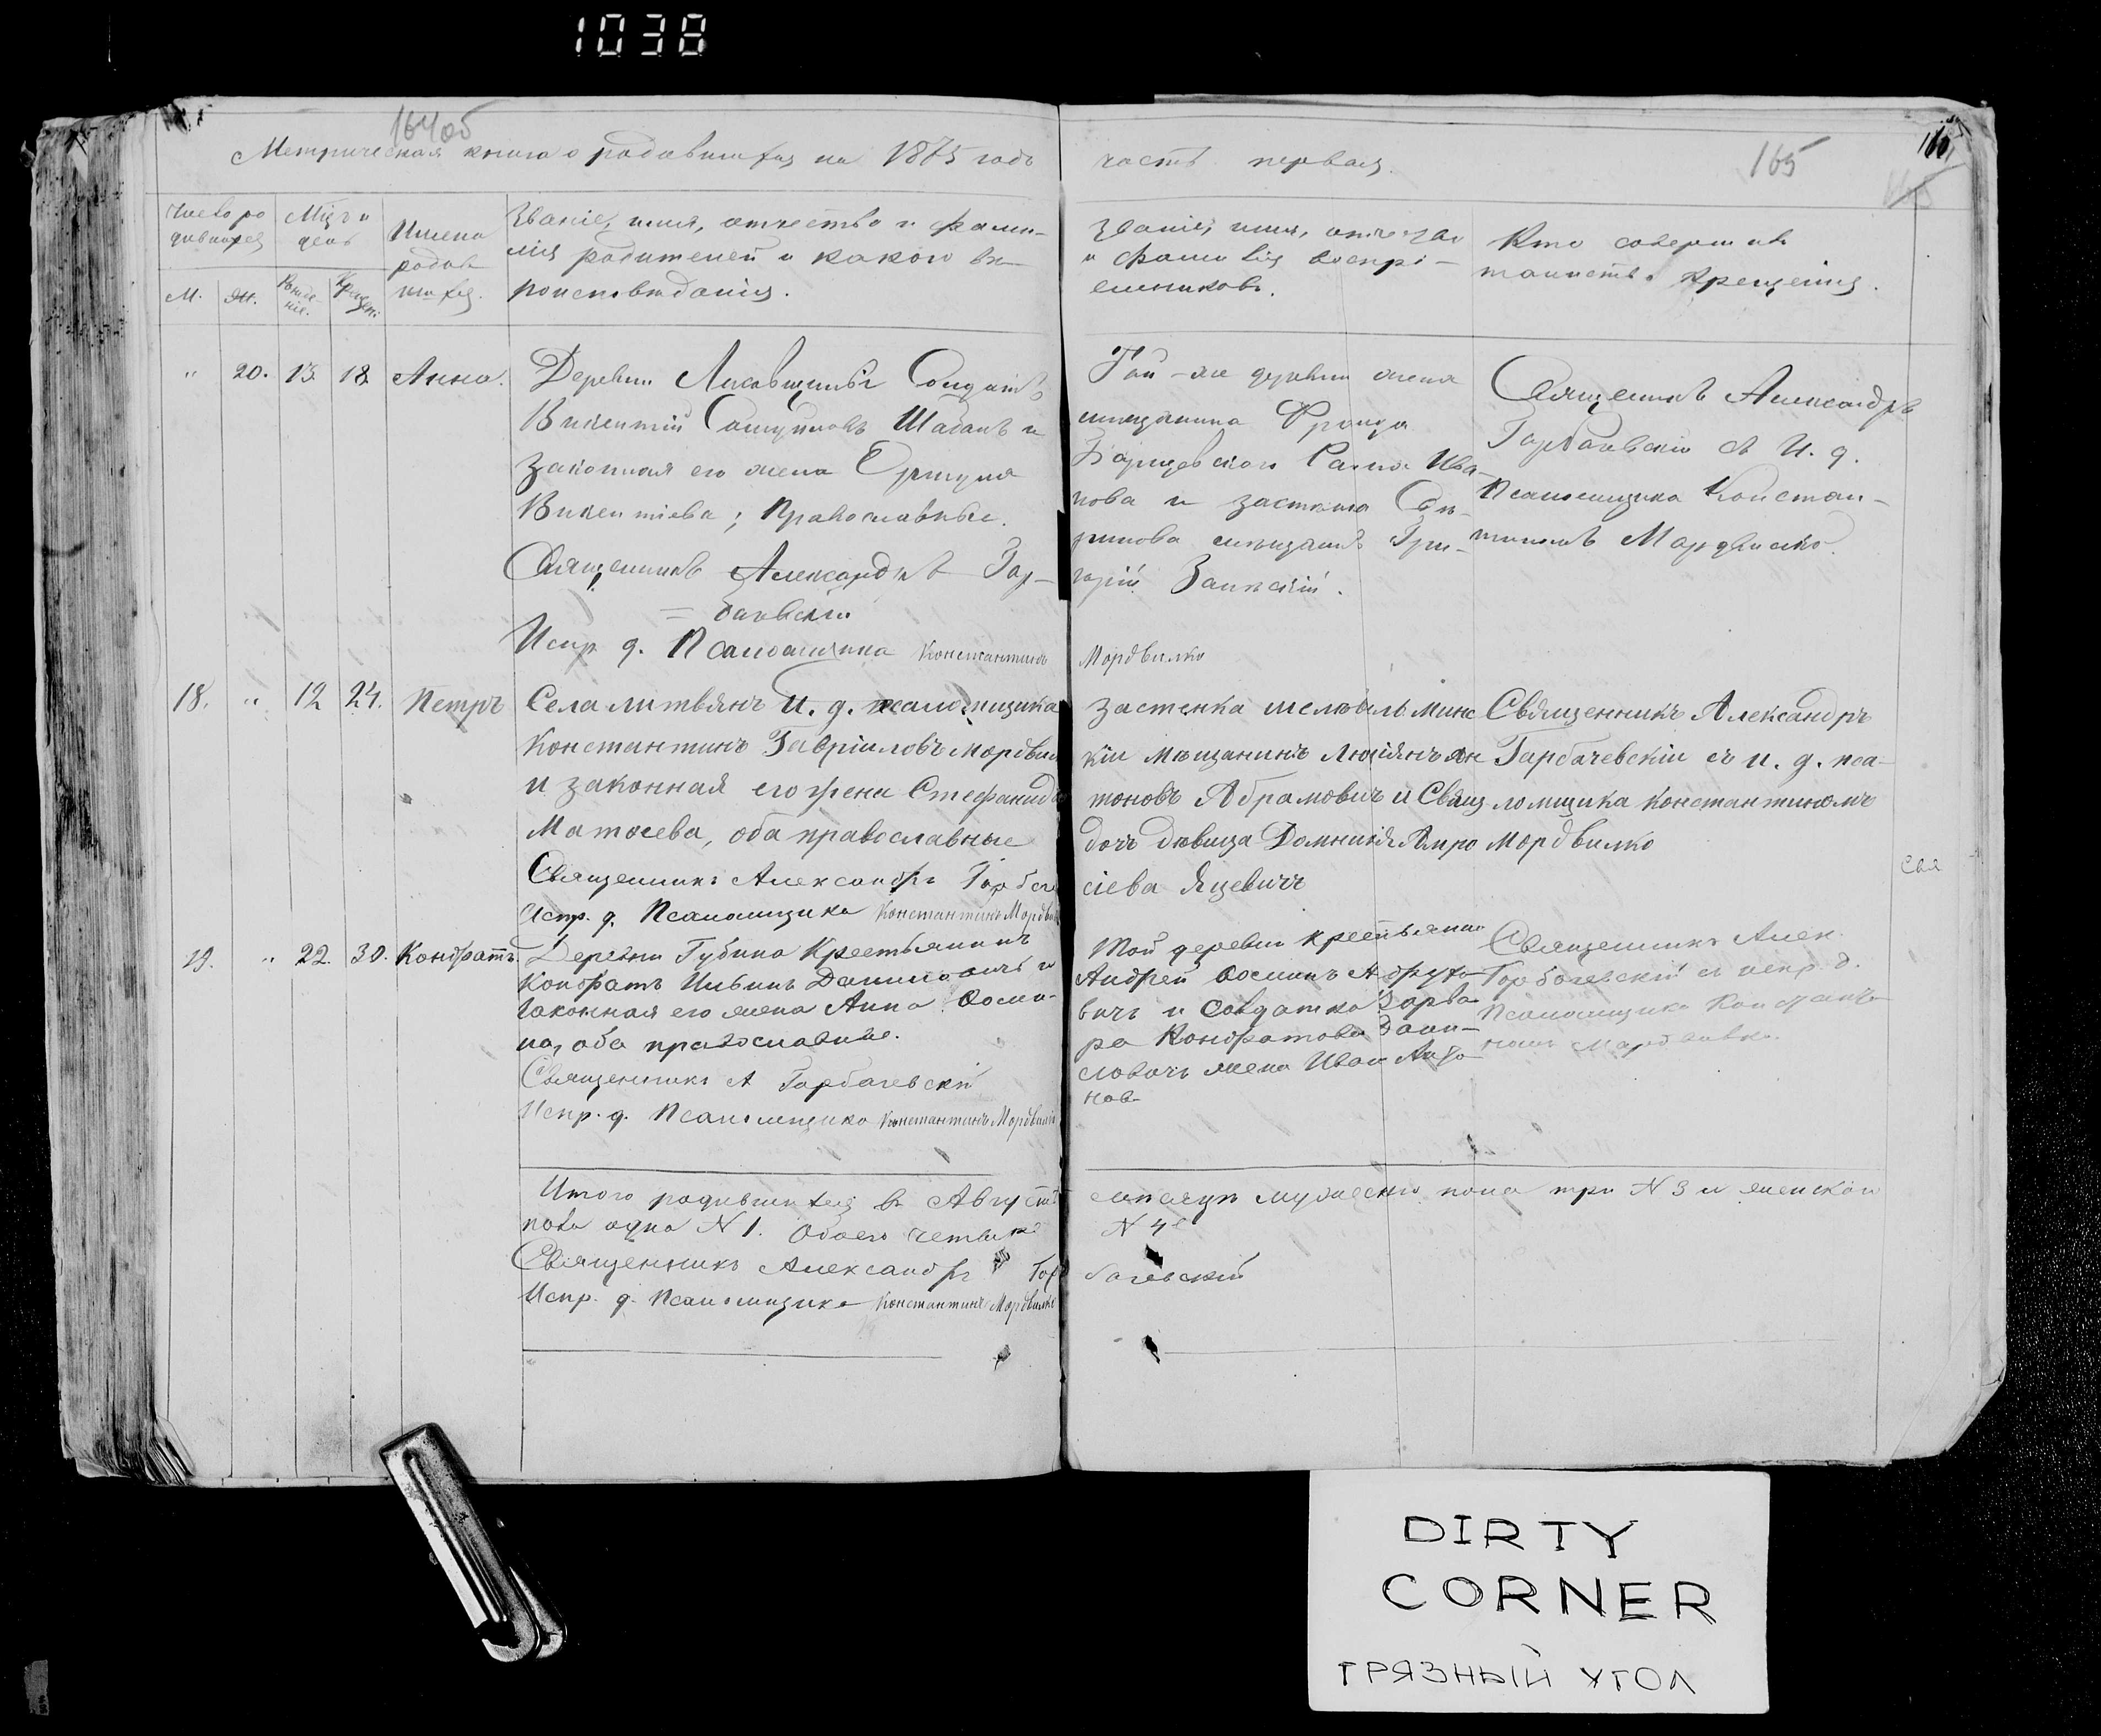 1038
164об
Метрическая книга о родившихся на 1875 годъ
часть первая.
165
Число ро
дившихся
М.
Ж.
Мцъ и
день
Рожде
ніе.
Крещен.
Имена
родив
шихся.
Званіе, имя, отчество и фами-
лія родителей и какого вѣ-
роисповѣданія.
Званіе, имя, отчество
и фамилія воспрі-
емниковъ.
Кто совершилъ
таинство крещенія.
" 20. 13 18 Анна.
Деревни Солдатъ
Викентій Шабанъ и
законная его жена
Викентіева; Православные.
Священникъ Александръ Гор-
= бачевскій
Испр. д. Псаломщика Константинъ
Той-же деревни жена
мѣщанина Франца
Ива-
нова и застѣнка
мѣщанинъ Гри-
горій
Мордвилко
Священникъ Александръ
Горбачевскій съ И. д.
Псаломщика Констан-
тиномъ Мордвилко.
18. " 12 24. Петръ
Села Литвянъ И. д. псаломщика
Константинъ Гавріиловъ Мордвил
и законная его жена Стефанида
Матѳеева, оба православные
Священникъ Александръ Горбач
Испр. д. Псаломщика Константинъ Мордвил
застенка Минс
кій мѣщанинъ Ан
тоновъ Абрамовичъ и Свящ
дочь дѣвица Домникія Амро
сіева Яцевичъ
Священникъ Александръ
Гарбачевскій съ и. д. пса-
ломщика Константиномъ
Мордвилко
Свя
19. " 22. 30. Кондратъ.
Деревни Губина Крестьянинъ
Кондратъ Ивынъ и
законная его жена Анна Ѳоми-
на, оба православные.
Священникъ А Горбачевскій
Испр. д. Псаломщика Константинъ Мордвилко
Той деревни крестьянинъ
Андрей Ѳоминъ
вичъ и Солдатка Варва-
ра Кондратова
жена Иван Анто
нов
Священникъ Алек.
Горбачевскій съ испр. д.
Псаломщика Константи-
номъ Мордвилко.
Итого родившихся въ Августѣ
мѣсяцѣ мужеского пола три N 3 и женского
пола одна N 1. Обоего четыре
N 4
Священникъ Александръ Гор
бачевскій
Испр. д. Псаломщика Константинъ Мордвилко
DIRTY
CORNER
ГРЯЗНЫЙ УГОЛ